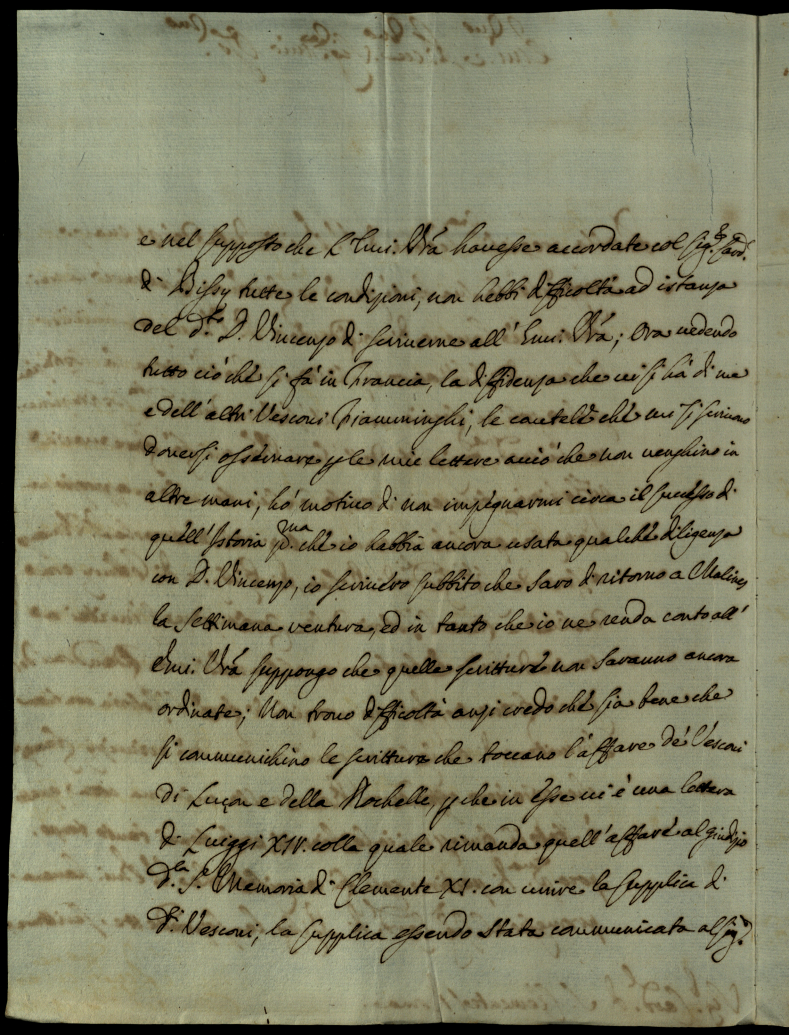 e nel supposto che l'Emi. Vrã havesse accordate col Sig.r Card.
di Bissy tutte le condizioni, non hebbi difficoltà ad istanza
del d.o D. Vincenzo di scriverne all' Emi. Vrã; Ora vedendo
tutto ciò chè si fà in Francia, la diffidenza che vi si hà di me
e dell' altri Vescovi Fiamminghi, le cautele chè mi si scrivono
doversi osservare p le mie lettere acciò che non venghino in
altre mani, hò motivo di non impegnarmi circa il successo di
quell' Istoria p.ma chè io habbia ancora usata qualchè diligenza
con D. Vincenzo, io scriverò subbito che sarò di ritorno a Malines
la settimana ventura, ed in tanto che io ne renda conto all'
Emi. Vrã suppongo che quelle scritture non saranno ancora
ordinate; Non trovo difficoltà anzi credo chè sia bene che
si communichino le scritture che toccano l'affare de' Vescovi
di Luçon e della Rochelle, p che in esse vi è una lettera
di Luiggi XIV. colla quale rimanda quell' affare al giudizio
d.la S.ta Memoria di Clemente XI. con unire la supplica di
d.i Vescovi, la supplica essendo stata communicata al Sig.r